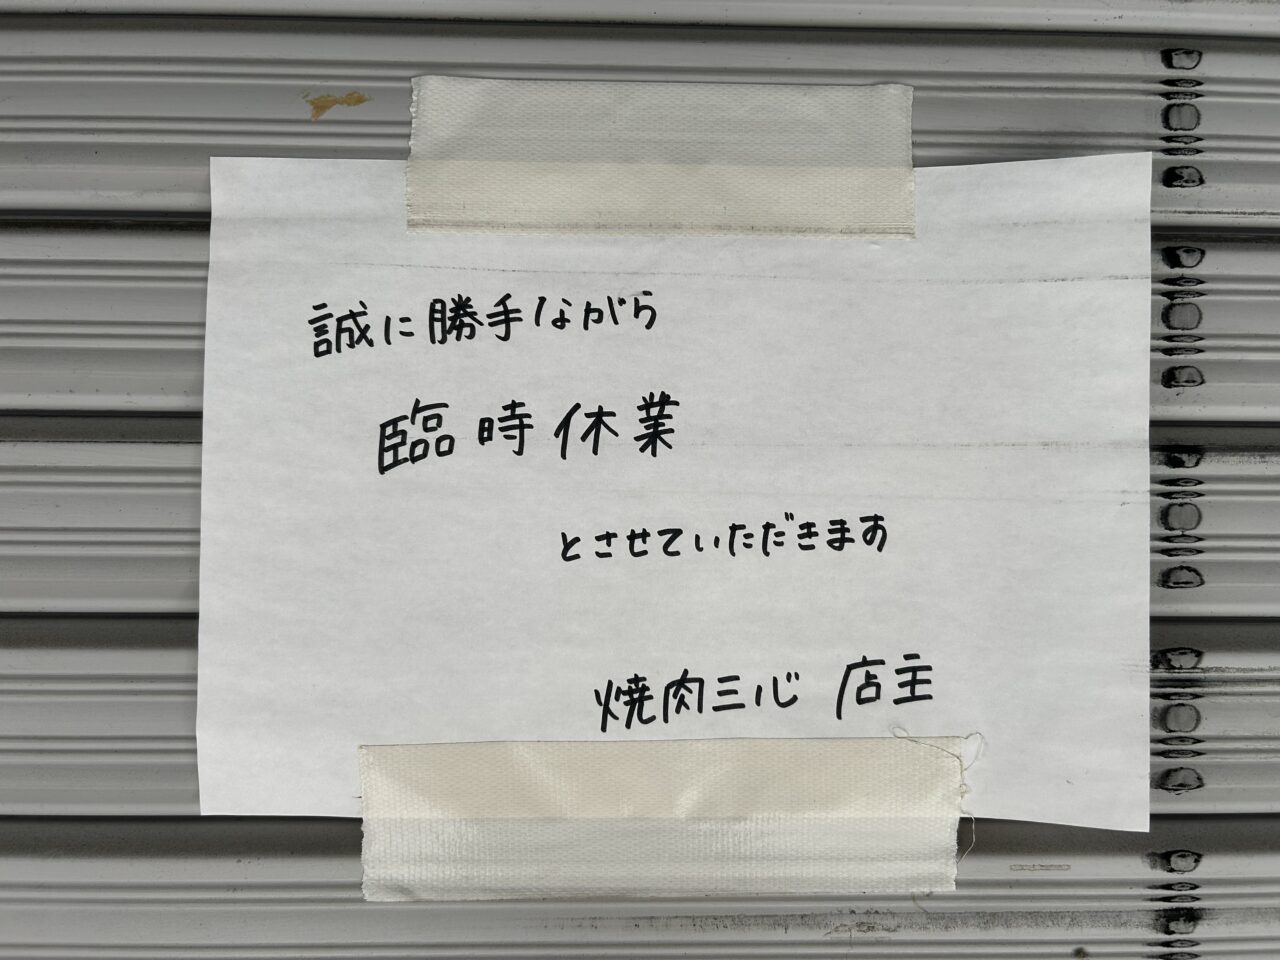 誠に勝手ながら
臨時休業
とさせていただきます
焼肉三心 店主